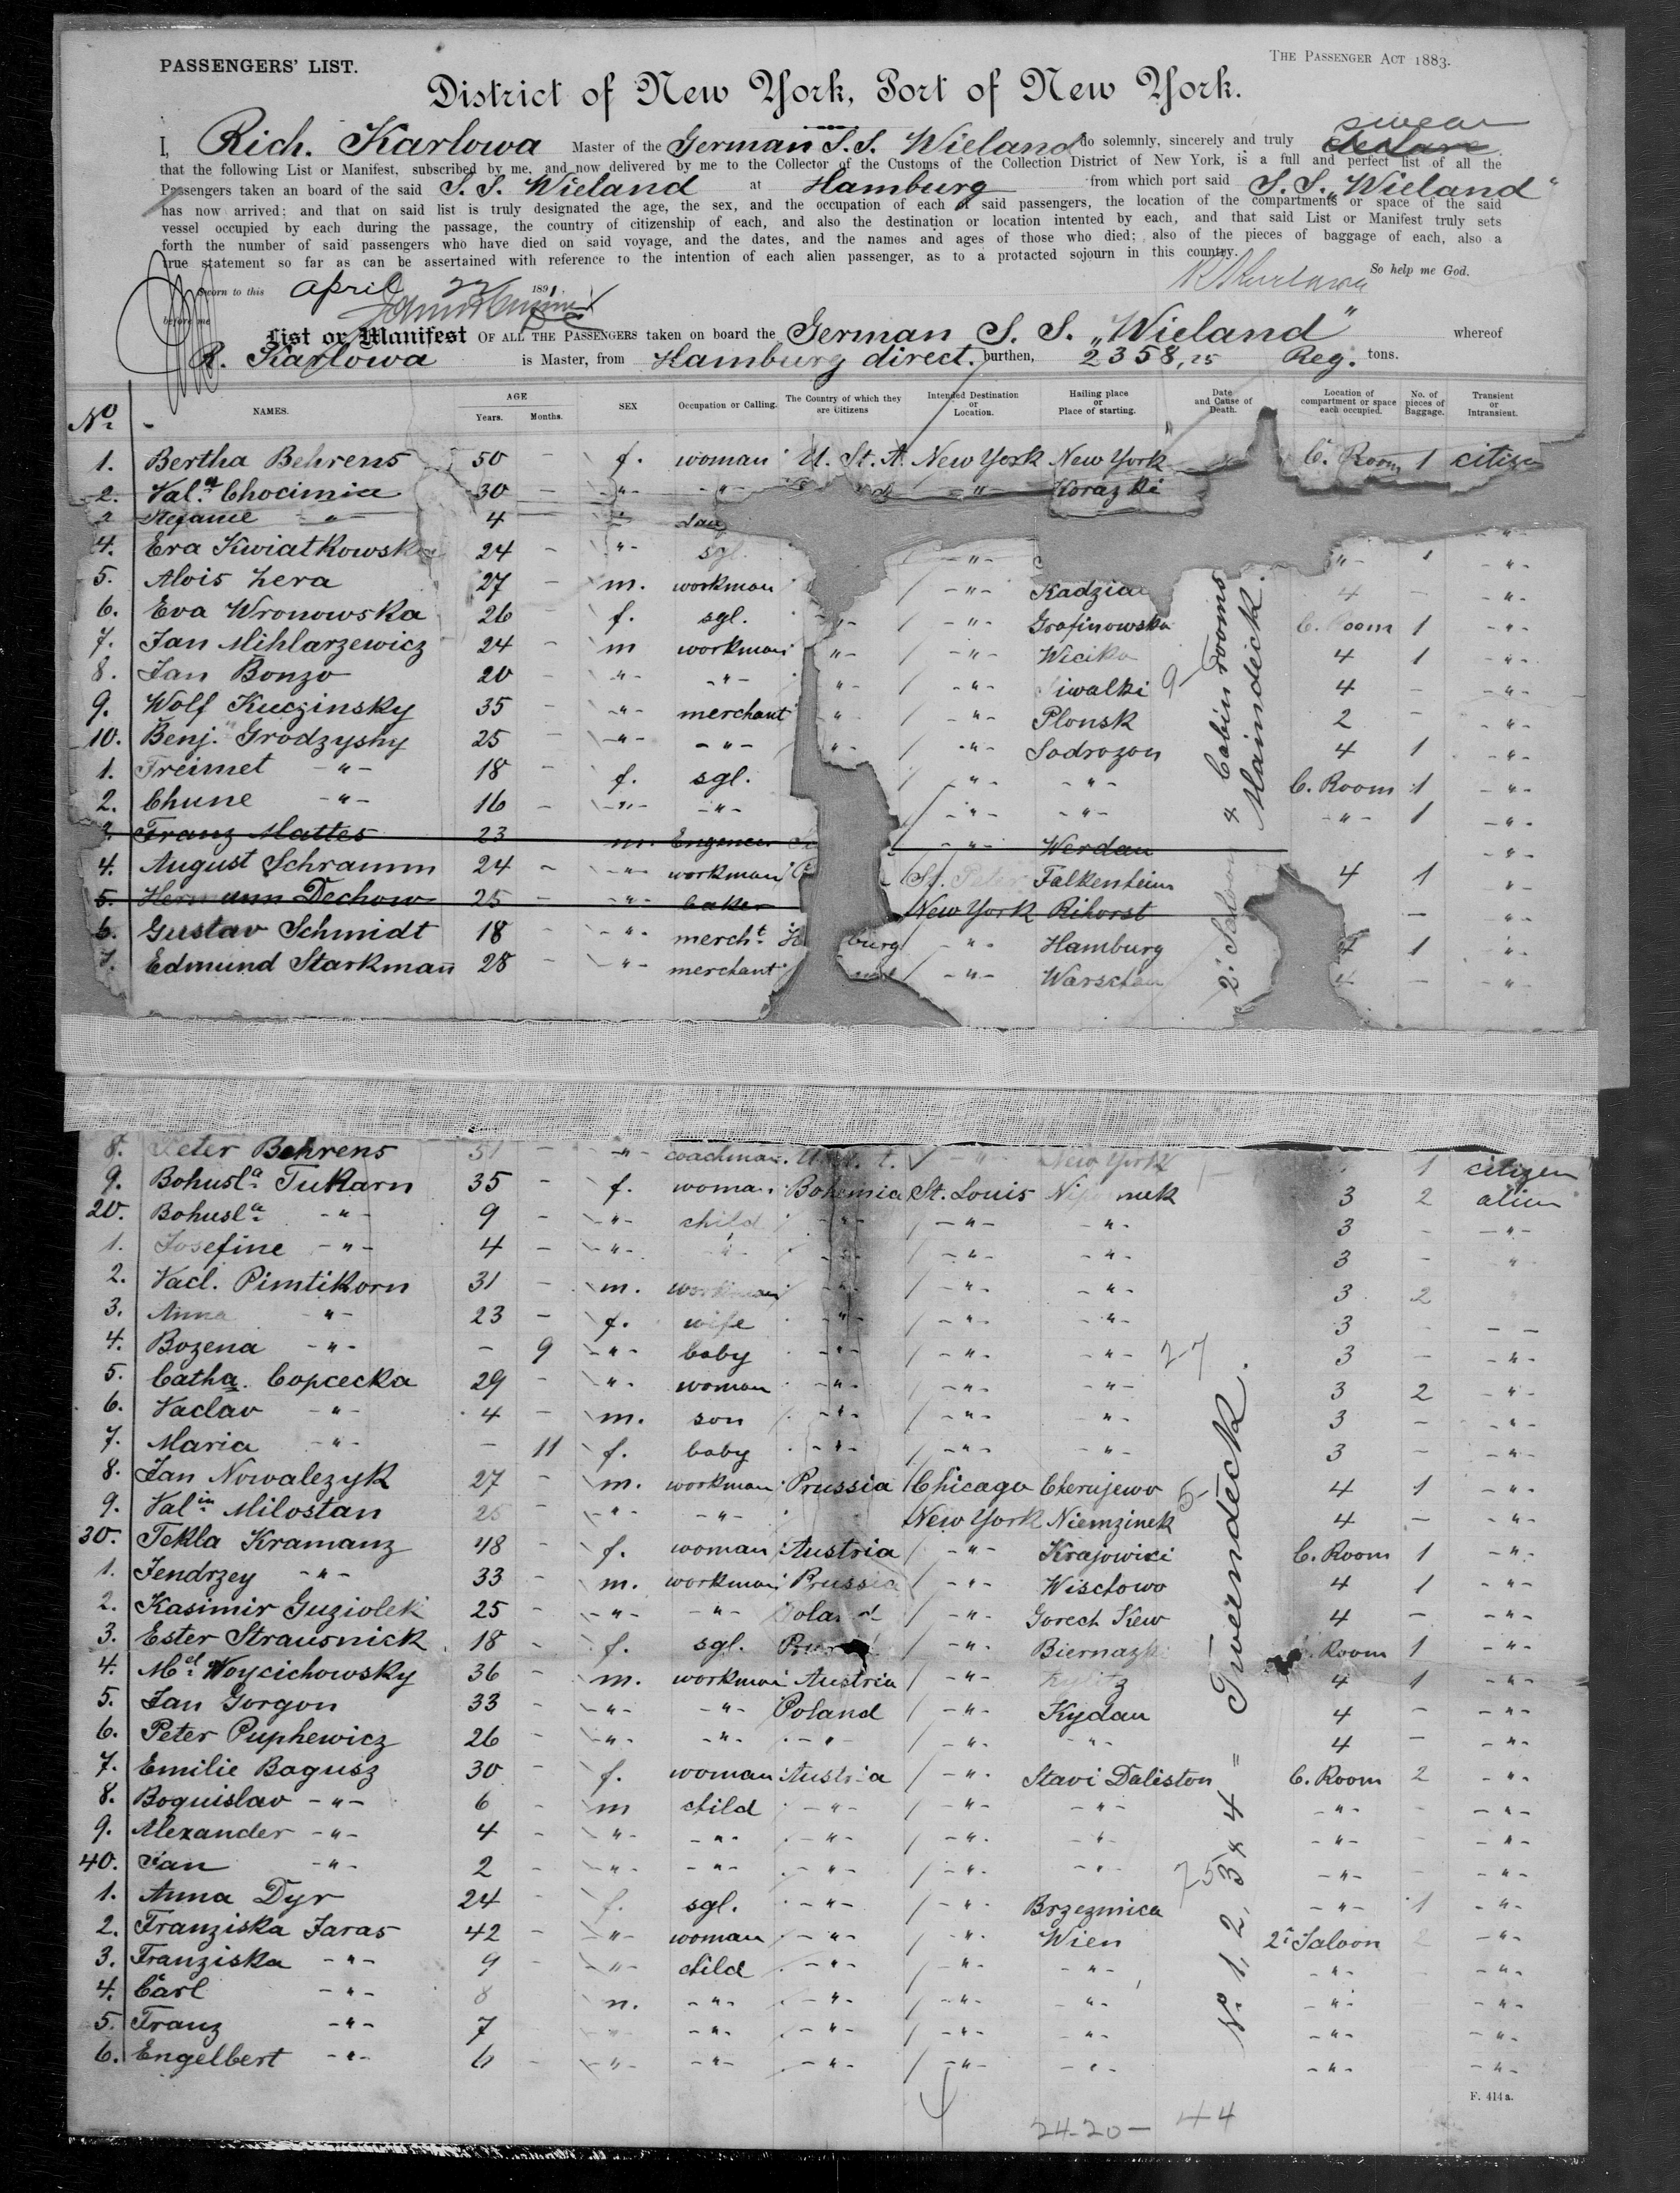 PASSENGERS' LIST.
THE PASSENGER ACT 1883.
District of New York, Port of New York.
I, Rich. Karlowa Master of the German S.S. Wieland do solemnly, sincerely and truly swear
that the following List or Manifest, subscribed by me, and now delivered by me to the Collector of the Customs of the Collection District of New York, is a full and perfect list of all the
Passengers taken an board of the said S. S. Wieland at Hamburg from which port said S. S. „Wieland"
has now arrived; and that on said list is truly designated the age, the sex, and the occupation of each of said passengers, the location of the compartments or space of the said
vessel occupied by each during the passage, the country of citizenship of each, and also the destination or location intented by each, and that said List or Manifest truly sets
forth the number of said passengers who have died on said voyage, and the dates, and the names and ages of those who died; also of the pieces of baggage of each, also a
true statement so far as can be assertained with reference to the intention of each alien passenger, as to a protacted sojourn in this country.
So help me God.
Sworn to this April 22 1891.
before me
List or Manifest OF ALL THE PASSENGERS taken on board the German S. S. „Wieland" whereof
R. Karlowa is Master, from Hamburg direct. burthen, 2358,25 Reg. tons.
No. NAMES. AGE Years. Months. SEX Occupation or Calling. The Country of which they are Citizens Intended Destination or Location. Hailing place or Place of starting. Date and Cause of Death. Location of compartment or space each occupied. No. of pieces of Baggage. Transient or Intransient.
1. Bertha Behrens 50 - f. woman U. St. A. New York New York C. Room 1 citizen
2. Val.a Chocimia 30 - -"- -"- -"- Korazki
3 Stefanie -"- 4
4. Eva Kwiatkowska 24 - -"- sgl. -"- -"- 1 -"-
5. Alois Zera 27 - m. workman -"- 4 - -"-
6. Eva Wronowska 26 - f. sgl. -"- -"- Grafinowska C. Room 1 -"-
7. Jan Mihlarzewicz 24 - m workman -"- -"- Wicika 4 1 -"-
8. Jan Bonzo 20 -"- -"- -"- -"- 4 - -"-
9. Wolf Kuczinsky 35 - -"- merchant -"- -"- Plonsk 2 - -"-
10. Benj. Grodzyshy 25 - -"- -"- -"- -"- Sodrozon 4 1 -"-
1. Freimet -"- 18 - f. sgl. -"- -"- C. Room 1 -"-
2. Chune -"- 16 - -"- -"- -"- -"- -"- 1 -"-
3. Franz Mattes 23 m. -"- Werdau -"-
4. August Schramm 24 - -"- workman Falkenheim 4 1 -"-
5. Hermann Dechow 25 - -"- baker New York Rihorst - -"-
6. Gustav Schmidt 18 - -"- mercht. -"- Hamburg 4 1 -"-
7. Edmund Starkmann 28 - -"- merchant -"- Warschau 4 - -"-
8. Peter Behrens 51 - -"- coachman. -"- New York 1 citizen
9. Bohusl.a Tukarn 35 - f. woman Bohemia St. Louis 3 2 alien
20. Bohusl.a -"- 9 - -"- child -"- -"- -"- 3 - -"-
1. Josefine -"- 4 - -"- -"- -"- -"- -"- 3 - "
2. Vacl. Pimtikorn 31 - m. workman -"- -"- -"- 3 2
3. Anna -"- 23 - f. wife -"- -"- -"- 3 - -
4. Bozena -"- - 9 -"- baby -"- -"- -"- 3 - -"-
5. Catha. Copcecka 29 - -"- woman -"- -"- -"- 3 2 -"-
6. Vaclav -"- 4 - m. son -"- -"- -"- 3 - -"-
7. Maria -"- - 11 f. baby -"- -"- -"- 3 - -"-
8. Jan Nowalczyk 27 - m. workman Prussia Chicago Cherujewo 4 1 -"-
9. Val.in Milostan 25 - -"- -"- New York Niemzinek 4 - -"-
30. Tekla Kramanz 48 - f. woman Austria -"- Krajowici C. Room 1 -"-
1. Jendrzey -"- 33 - m. workman Prussia -"- Wischowo 4 1 -"-
2. Kasimir Guziolek 25 - -"- -"- Poland -"- Gorech Kew 4 - -"-
3. Ester Strausnick 18 - f. sgl. -"- Biernazki C. Room 1 -"-
4. Mel. Woycichowsky 36 - m. workman Austria -"- 4 1 -"-
5. Jan Gorgon 33 -"- -"- Poland -"- Kydau 4 - -"-
6. Peter Puphewicz 26 - -"- -"- -"- -"- -"- 4 - -"-
7. Emilie Bagusz 30 - f. woman Austria -"- Stavi Daliston C. Room 2 -"-
8. Boguislav -"- 6 - m child -"- -"- -"- -"- - -"-
9. Alexander -"- 4 - -"- -"- -"- -"- -"- -"- - -"-
40. Jan -"- 2 - -"- -"- -"- -"- -"- -"- -"-
1. Anna Dyr 24 - f. sgl. -"- -"- Brzezmica -"- 1 -"-
2. Franziska Jaras 42 - -"- woman -"- -"- Wien 2. Saloon 2 -"-
3. Franziska -"- 9 - -"- child -"- -"- -"- -"- -"-
4. Carl -"- 8 m. -"- -"- -"- -"- -"- -"-
5. Franz -"- 7 -"- -"- -"- -"- -"- -"-
6. Engelbert -"- 6 - -"- -"- -"- -"- -"- -"- -"-
2. Saloon & Cabin rooms
Maindeck.
No. 1, 2, 3 & 4 = Tweendeck.
9
27
5
75
F. 414a.
24-20- 44